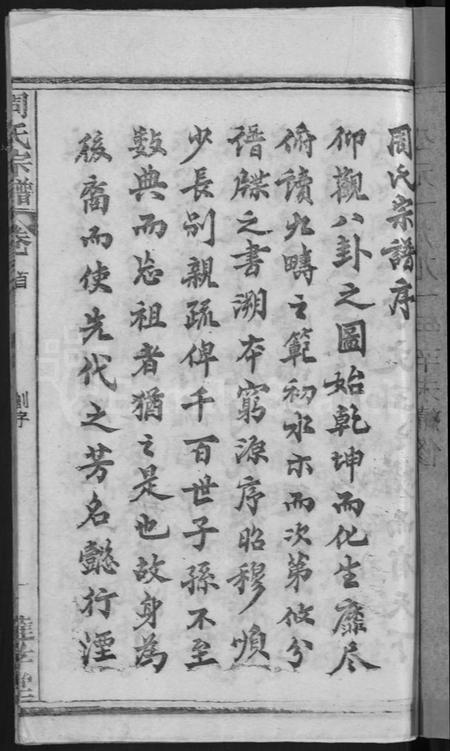 周氏宗譜序
仰觀八卦之圖始乾坤而化生靡尽
俯讀九疇之範初水木而次第攸分
譜牒之書溯本窮源序昭穆順
少長别親疏俾千百世子孫不至
數典而忘祖者猶之是也故身為
後裔而使先代之芳名懿行湮
周氏宗譜
卷首